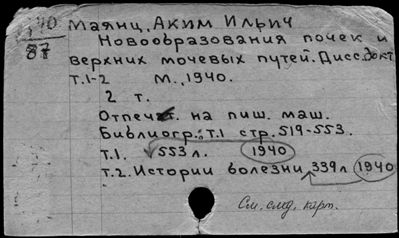 40 Маянц, Аким Ильич
87
Новообразования почек и
верхних мочевых путей. Дисс. докт
т.1-2 М., 1940.
2 т.
Отпечат. на пиш. маш.
Библиогр.: т.1 стр. 519-553.
т.1. 553 л. 1940
т.2. Истории болезни 339 л 1940
См. след. карт.